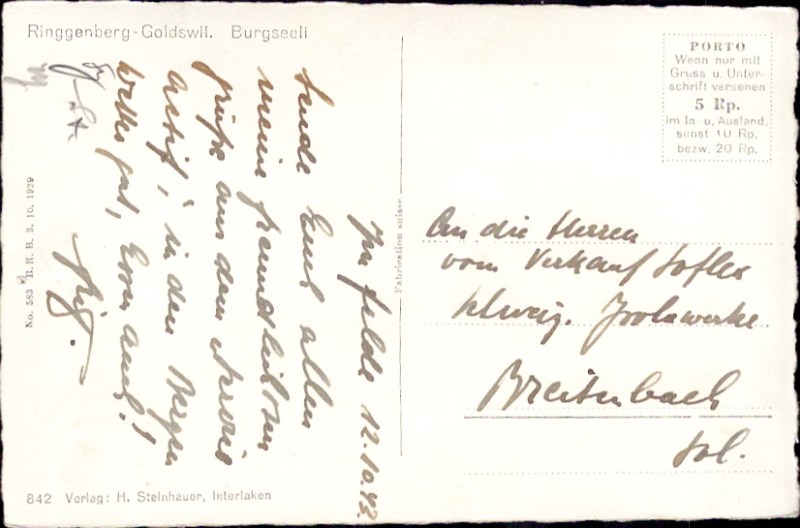 Ringgenberg-Goldswil. Burgseeli
PORTO
Wenn nur mit
Gruss u. Unter-
schrift versehen
5 Rp.
im In- u. Ausland,
sonst 10 Rp.
bezw. 20 Rp.
Im Felde 12.10.43.
Sende Euch allen
meine freundlichsten
Grüsse aus dem
in den Bergen
gut, Euch!
An die Herren
vom Verkauf Soflex
Schweiz. Isolawerke
Breitenbach
Sol.
Fabrication suisse
No. 583 B. R. B. 3. 10. 1939
842 Verlag: H. Steinhauer, Interlaken